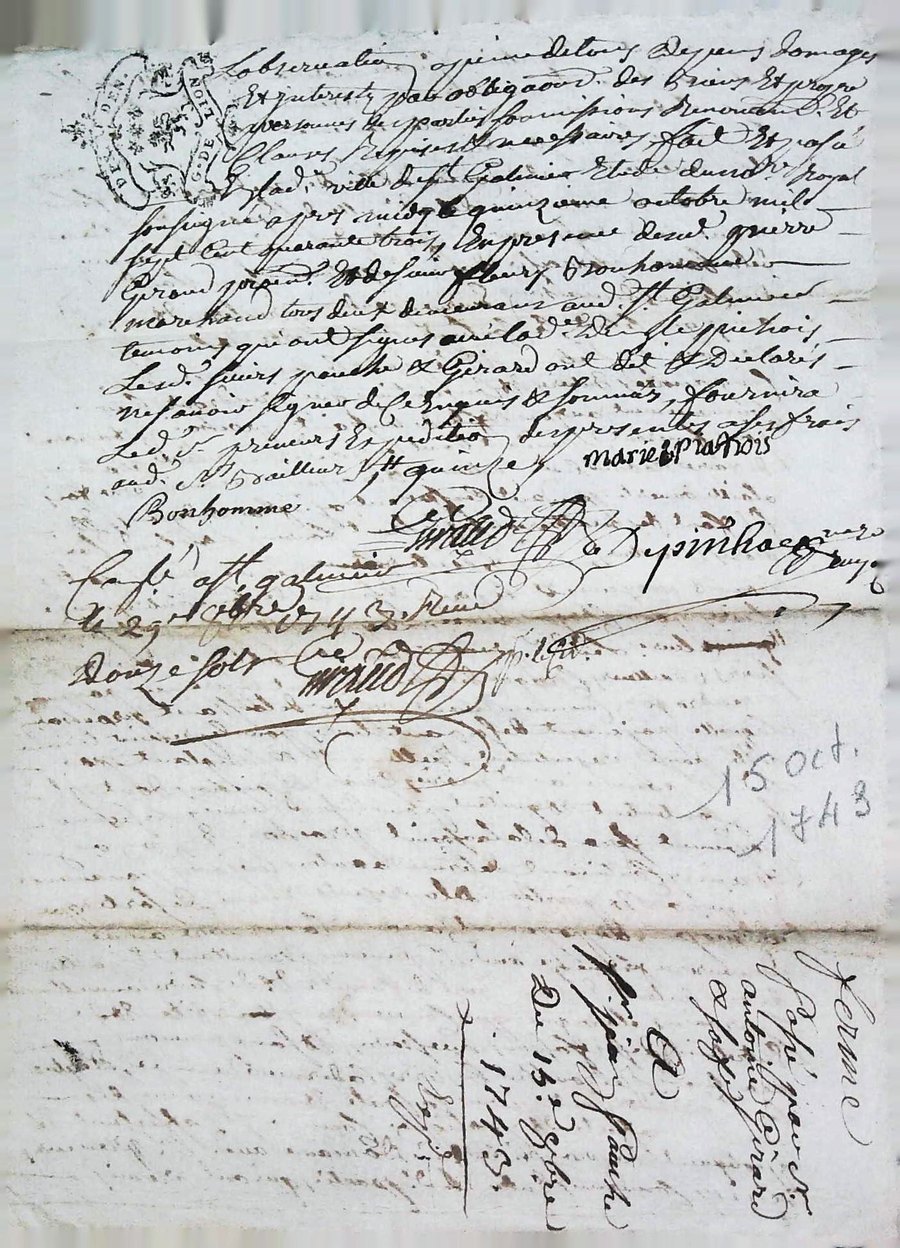 DEN. DEN.
G. DE LION
L'observation a peine de tous despens domages
Et interests par obligaōn des biens Et propre
personnes des parties soumissions Renonciaōn Et
Clauses Requises & necessaires, fait Et passé
En lad. ville de St Galmier Etude du no.re royal
soussigné apres midy le quinzieme octobre mil
sept Cent quarante trois En presence de me
Giraud & de sieur fleury Bonhomme
marchand tous deux demeurants aud. St Galmier
temoins qui ont signes avec lad. De
Lesd. sieurs pauche & Girard ont dit & Declarés
ne sçavoir signer de ce Enquis & sommés, fournira
Led. sr preneurs Expedition des presentes a ses frais
aud. sr Bailleur
marie pichois
Bonhomme
Giraud
Depinhac
Con.lé a St galmier
le 29e 8bre 1743 Reçu
Douze sols Giraud
15 oct.
1743
ferme
Passé par sr
antoine Girard
& 
A
sr. jean pauche
Du 15e 8bre
1743.